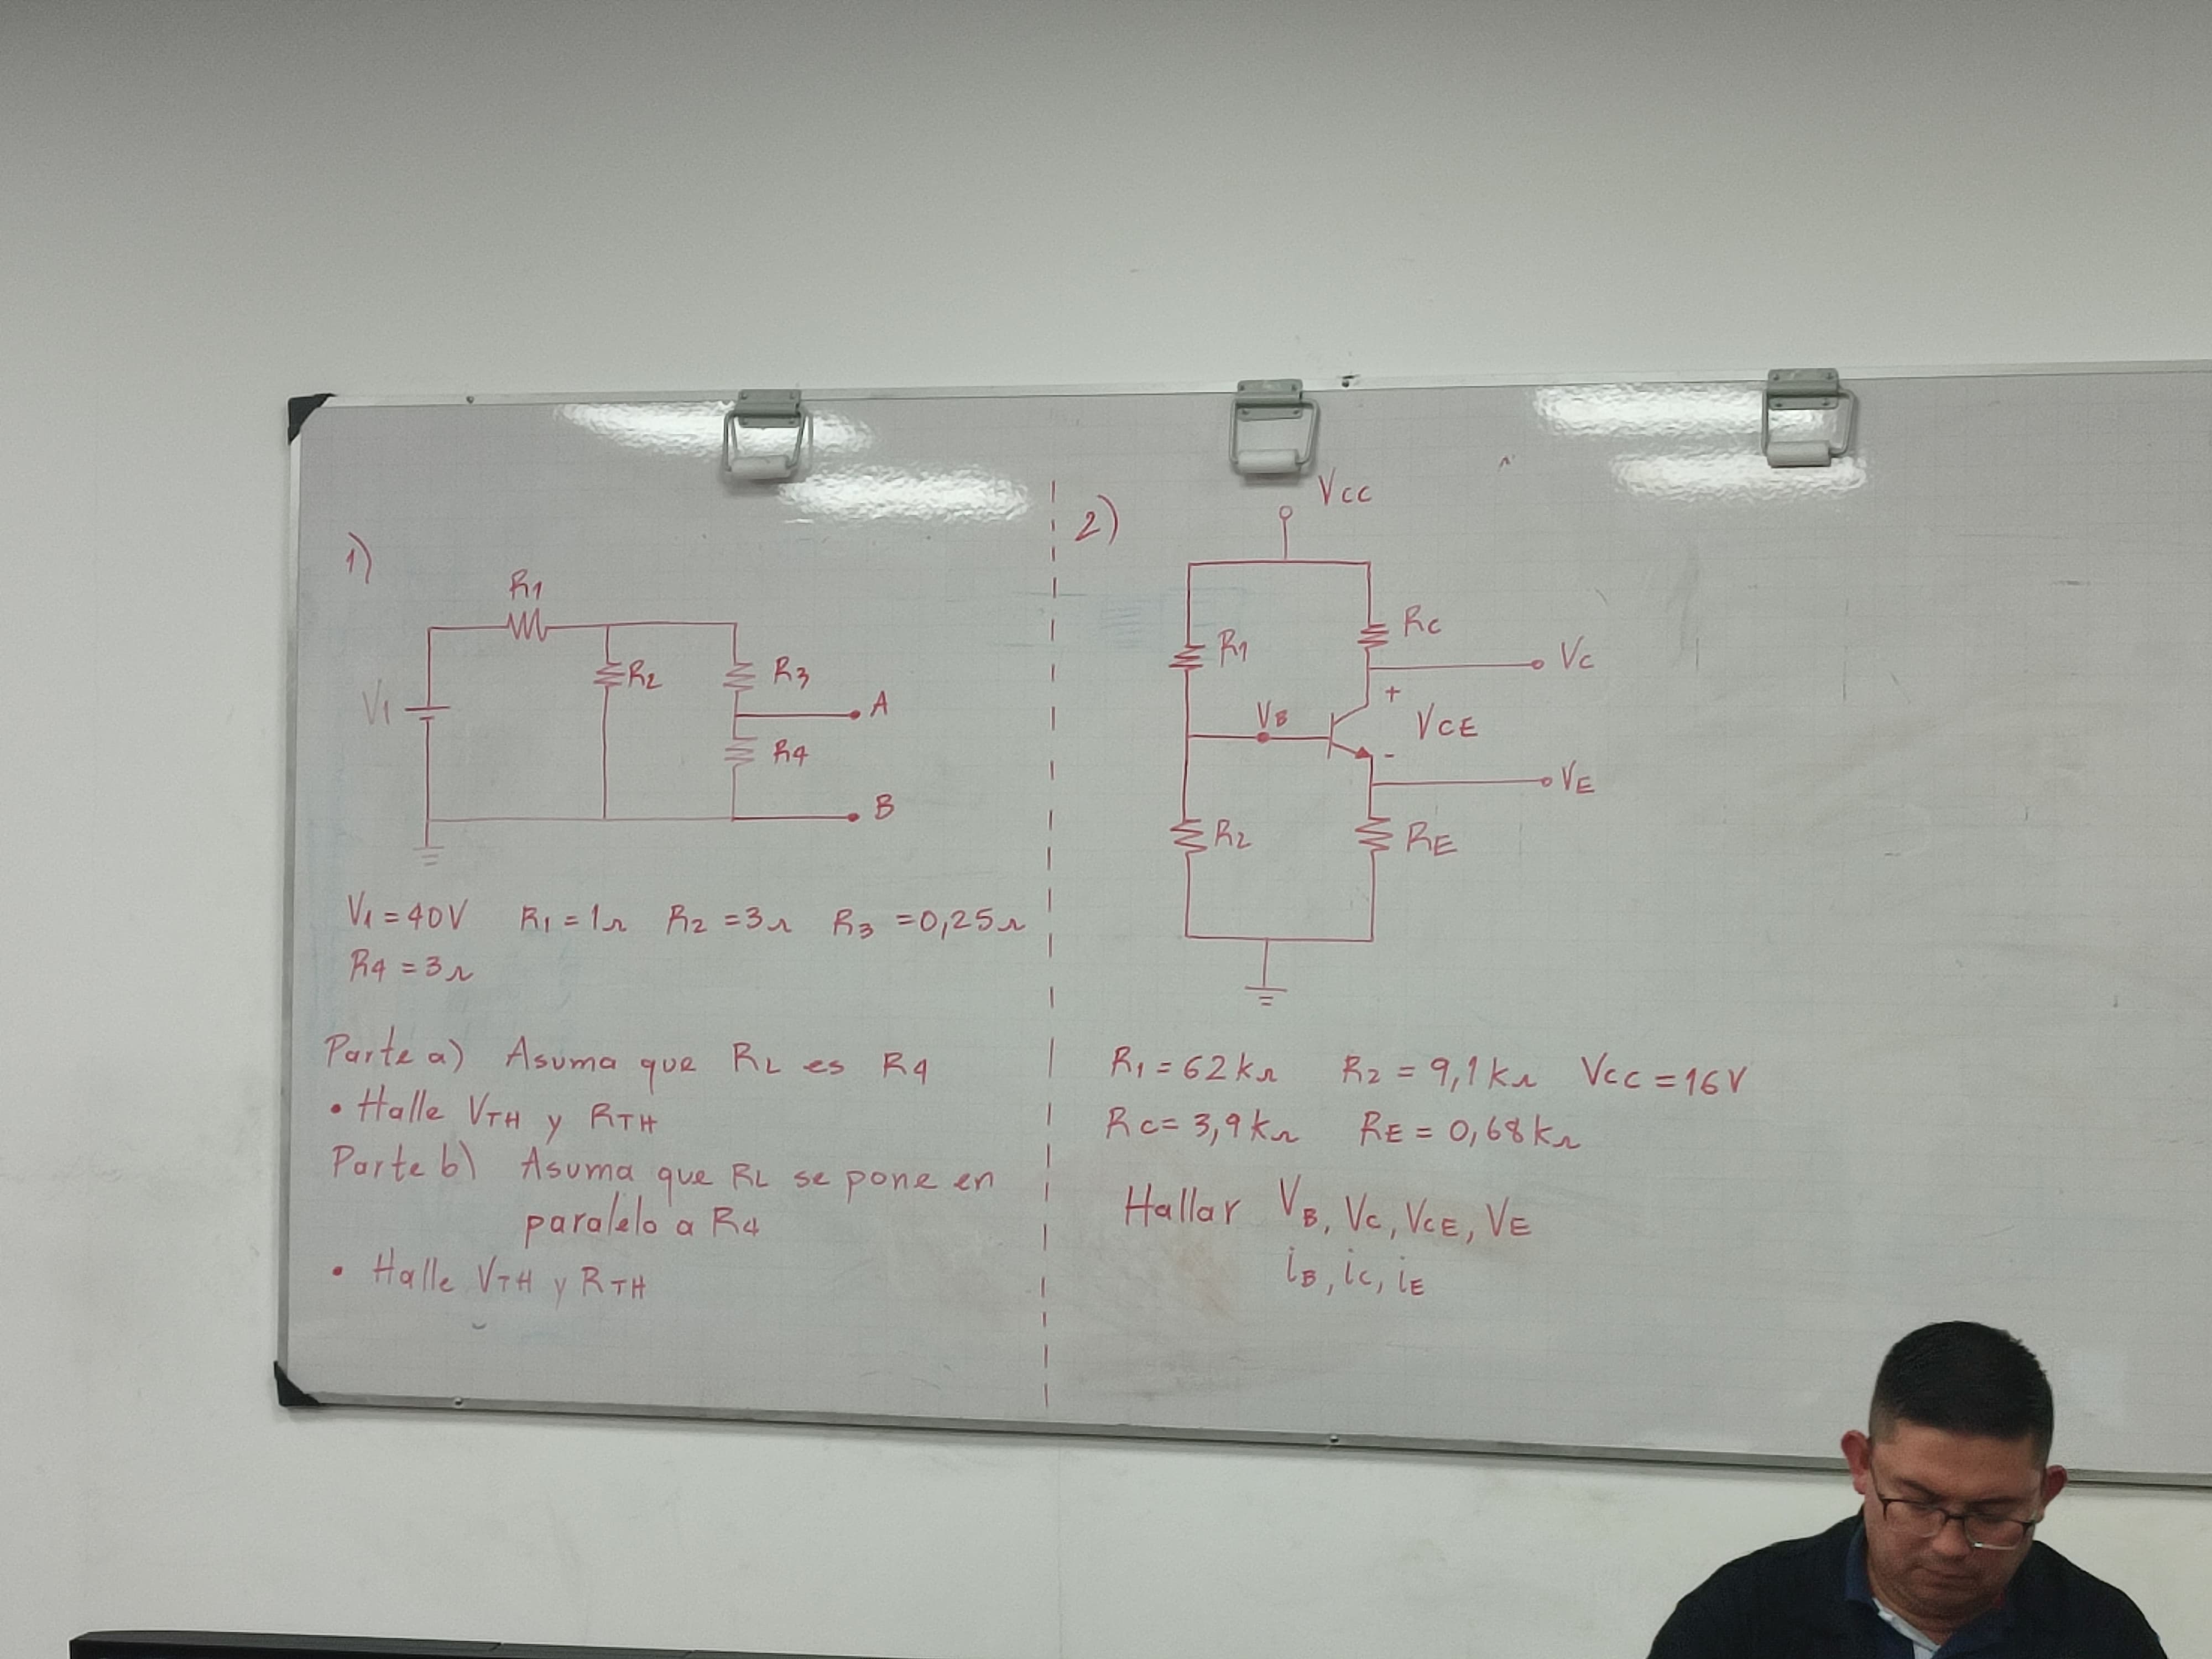 1)
R1
R2
R3
A
V1
R4
B
V1 = 40V R1 = 1Ω R2 = 3Ω R3 = 0,25Ω
R4 = 3Ω
Parte a) Asuma que RL es R4
• Halle VTH y RTH
Parte b) Asuma que RL se pone en
paralelo a R4
• Halle VTH y RTH
2)
VCC
RC
R1
VC
+
VB
VCE
-
VE
R2
RE
R1 = 62kΩ R2 = 9,1kΩ VCC = 16V
RC = 3,9kΩ RE = 0,68kΩ
Hallar VB, VC, VCE, VE
iB, iC, iE